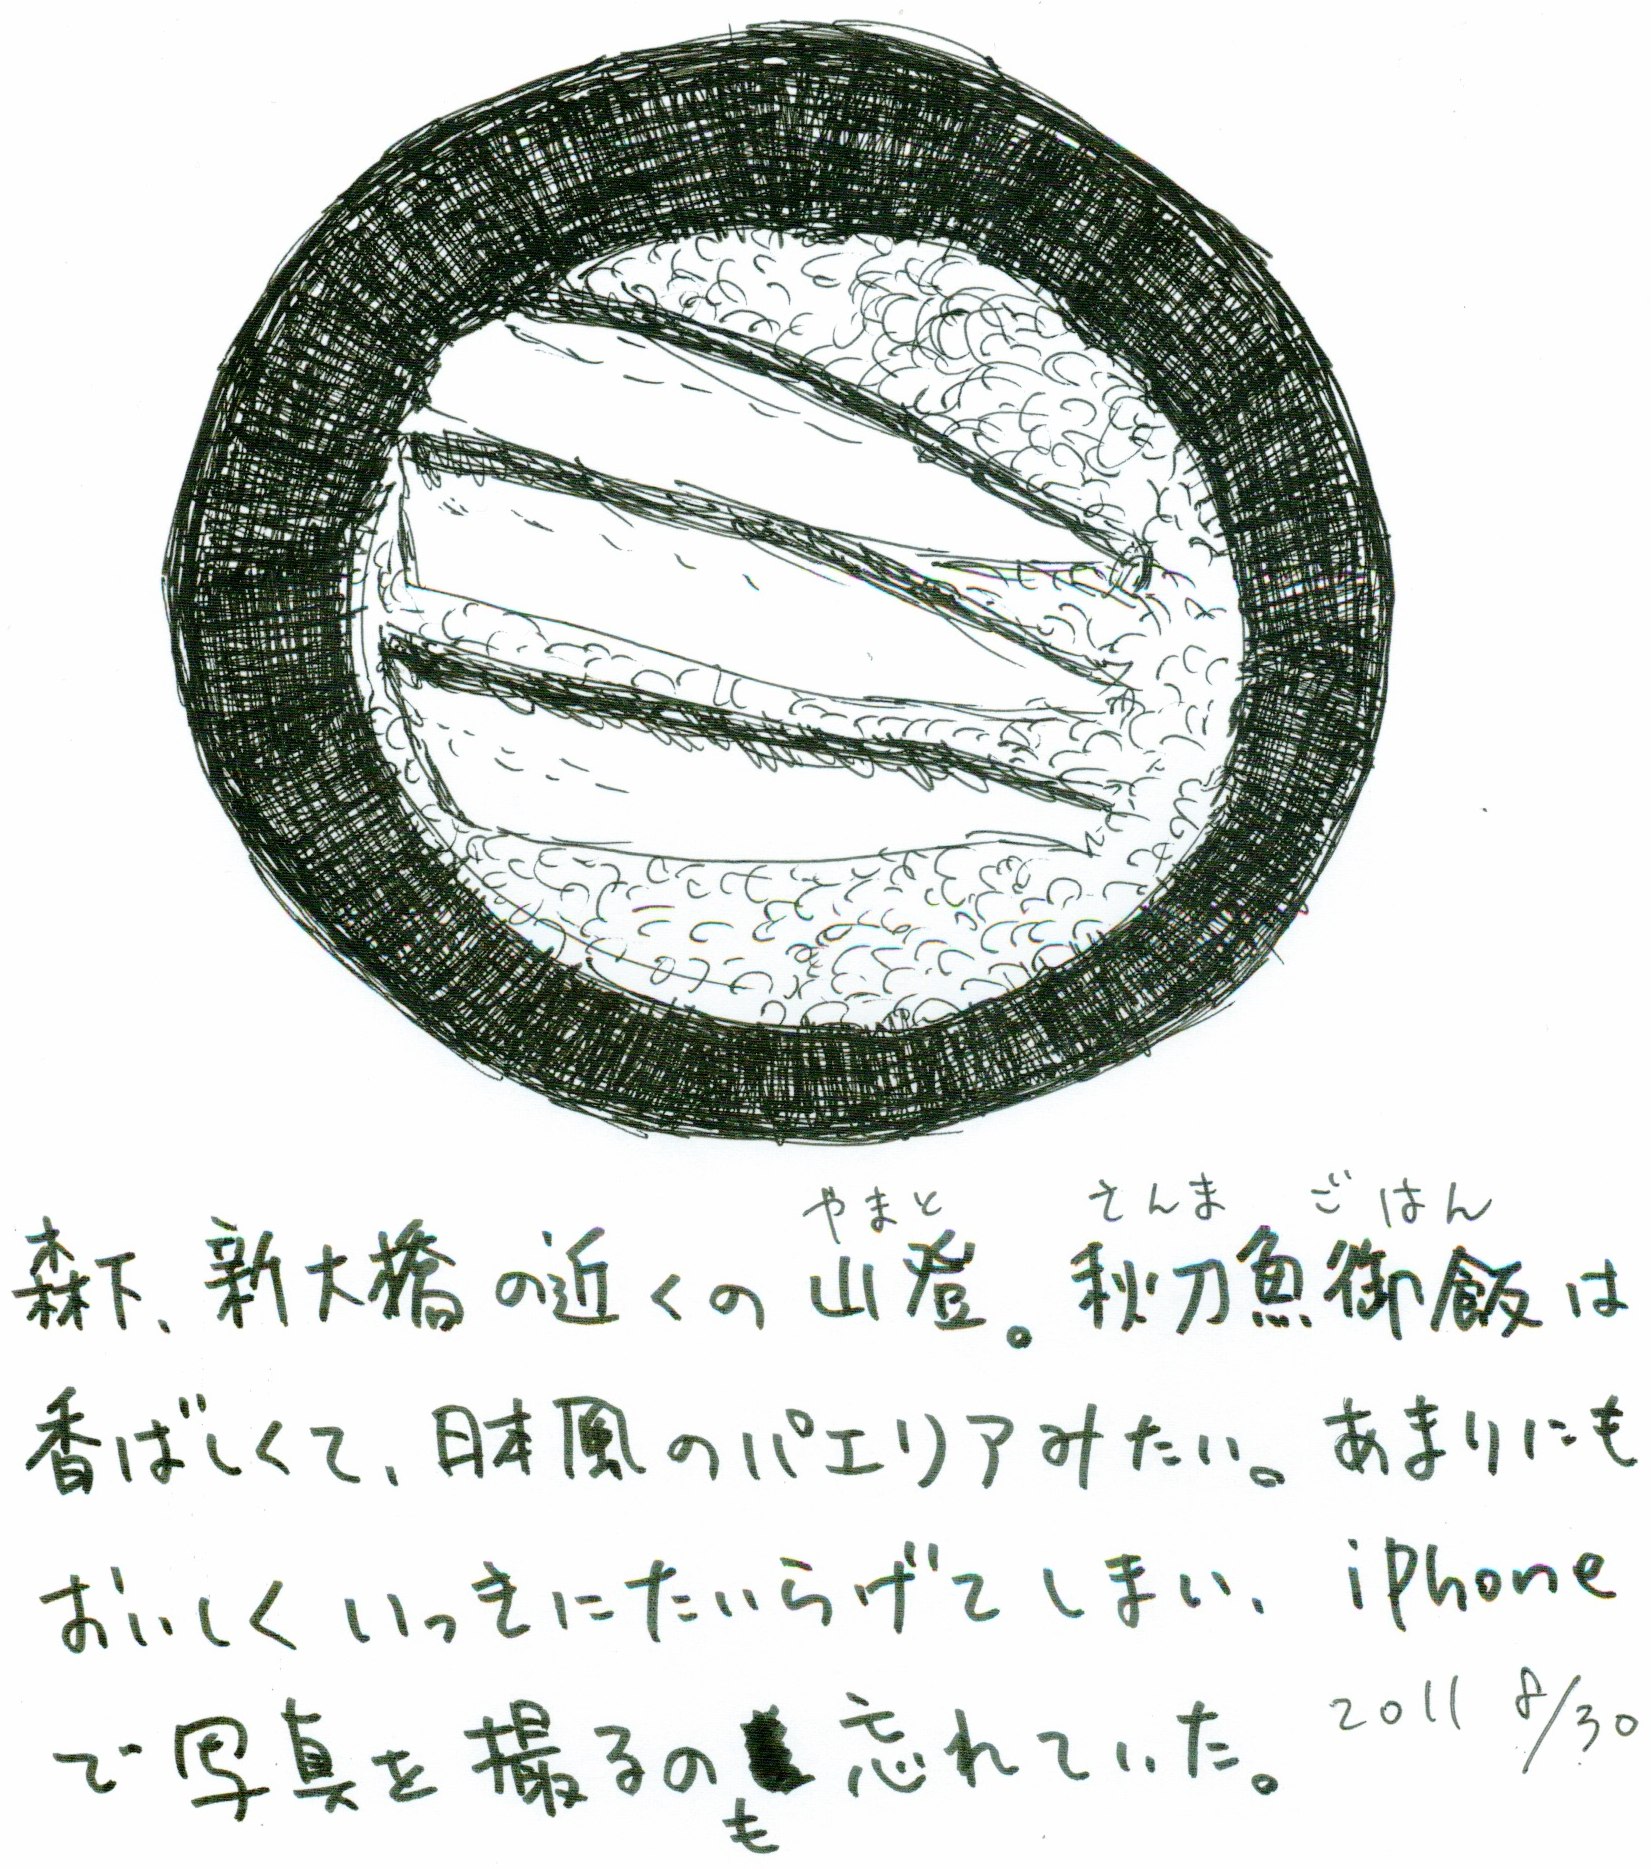 やまと さんま ごはん
森下、新大橋の近くの山登。秋刀魚御飯は
香ばしくて、日本風のパエリアみたい。あまりにも
おいしくいっきにたいらげてしまい、iphone
で写真を撮るのも忘れていた。2011 8/30